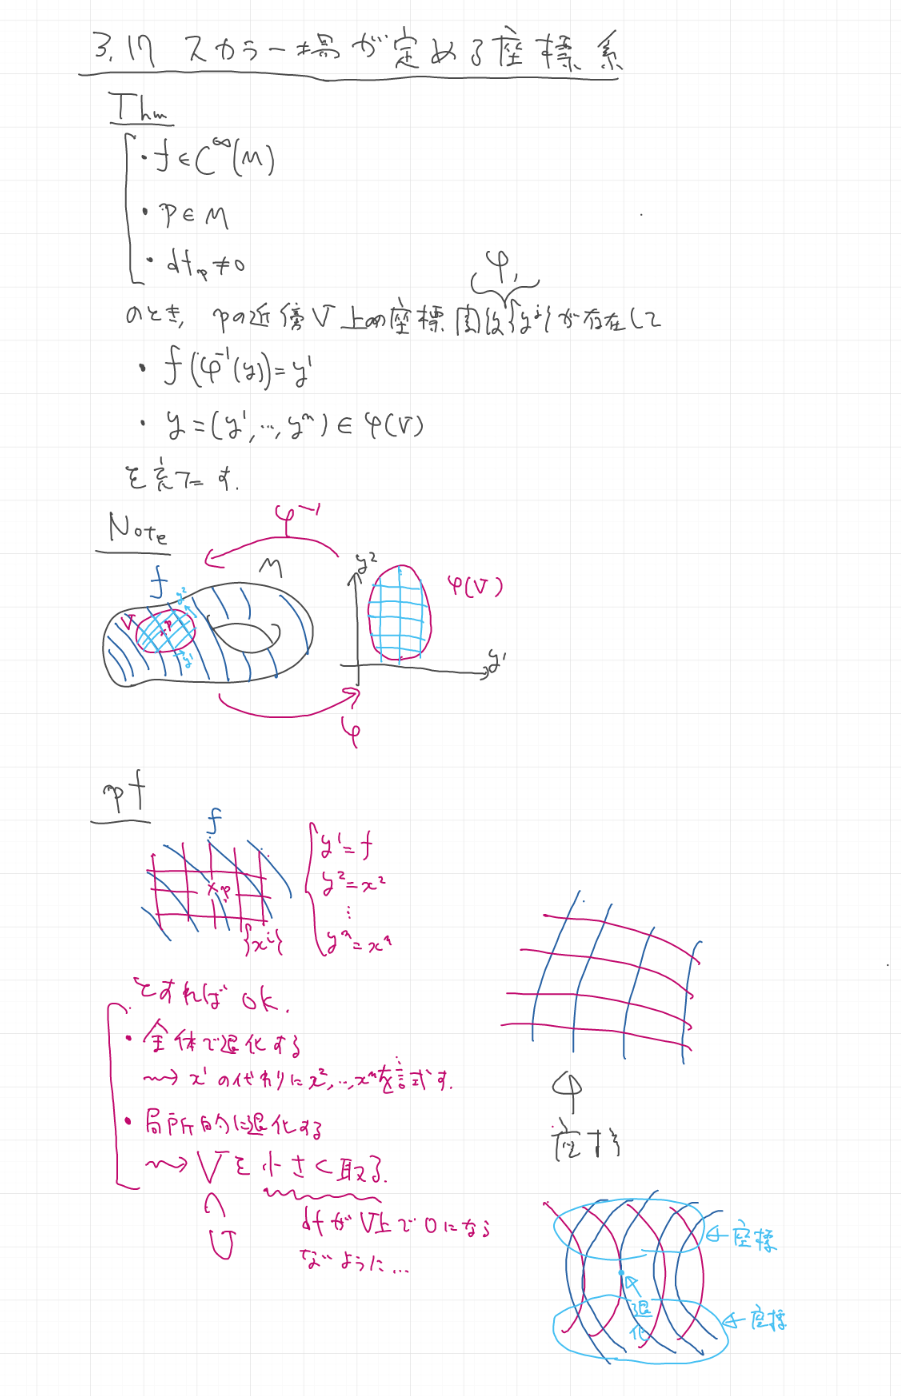 3.17 スカラー場が定める座標系
Thm
・f∈C^∞(M)
・p∈M
・df_p≠0
φ
のとき, pの近傍V上の座標関数{y^i}が存在して
・f(φ^{-1}(y))=y^1
・y=(y^1,…,y^n)∈φ(V)
を充たす.
Note
φ^{-1}
f
M
y^2
V
p
y^2
y^1
φ(V)
y^1
φ
pf
f
×p
{x^i}
y^1=f
y^2=x^2
⋮
y^n=x^n
とすればok.
・全体で退化する
⇝x^1の代わりにx^2,…,x^nを試す.
・局所的に退化する
⇝Vを小さく取る.
∩
U
dfがV上で0になる
ないように…
φ
座する
←座標
退化
←座標